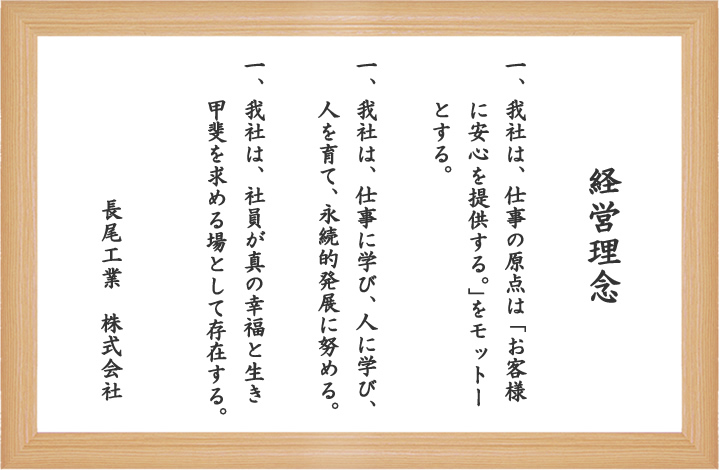 経営理念
一、我社は、仕事の原点は「お客様
に安心を提供する。」をモットー
とする。
一、我社は、仕事に学び、人に学び、
人を育て、永続的発展に努める。
一、我社は、社員が真の幸福と生き
甲斐を求める場として存在する。
長尾工業　株式会社